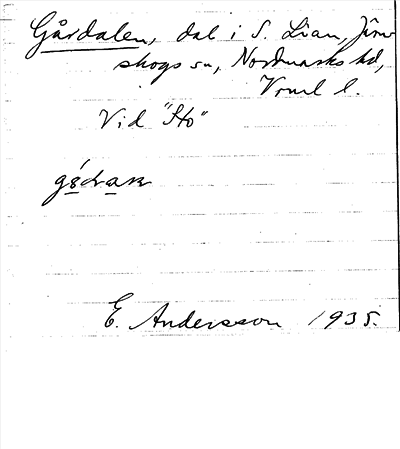 Gårdalen, dal i S. Lian, Järn
skogs sn, Nordmarks hd,
Vrml l.
Vid "Sto"

E. Andersson 1935.